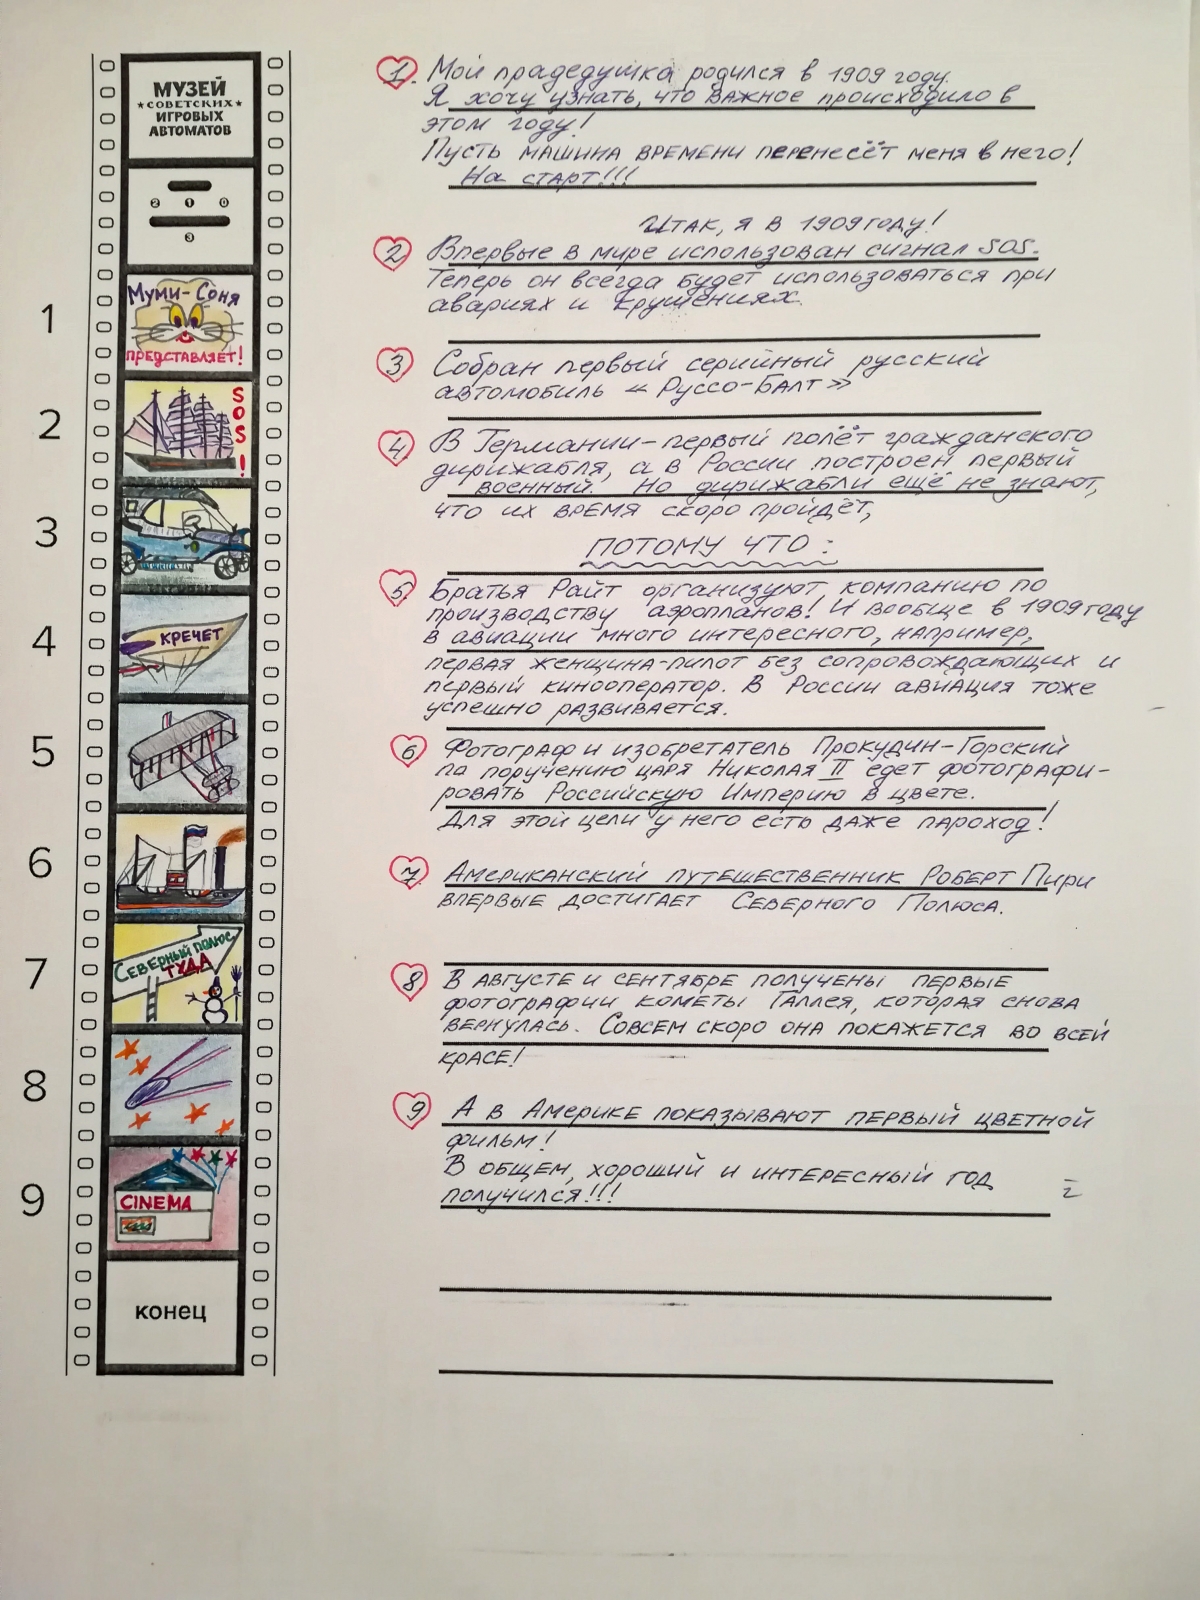 МУЗЕЙ
★СОВЕТСКИХ★
ИГРОВЫХ
АВТОМАТОВ
2 1 0
3
1
Муми-Соня
ПРЕДСТАВЛЯЕТ!
2
SOS!
3
4
КРЕЧЕТ
5
6
7
СЕВЕРНЫЙ ПОЛЮС
ТУДА
8
9
CINEMA
конец
1. Мой прадедушка родился в 1909 году.
Я хочу узнать, что важное происходило в
этом году!
Пусть машина времени перенесёт меня в него!
На старт!!!
Итак, я в 1909 году!
2 Впервые в мире использован сигнал SOS.
Теперь он всегда будет использоваться при
авариях и крушениях.
3 Собран первый серийный русский
автомобиль «Руссо-Балт»
4 В Германии-первый полёт гражданского
дирижабля, а в России построен первый
военный. Но дирижабли ещё не знают,
что их время скоро пройдёт,
ПОТОМУ ЧТО:
5 Братья Райт организуют компанию по
производству аэропланов! И вообще в 1909 году
в авиации много интересного, например,
первая женщина-пилот без сопровождающих и
первый кинооператор. В России авиация тоже
успешно развивается.
6 Фотограф и изобретатель Прокудин-Горский
па поручению царя Николая II едет фотографи-
ровать Российскую Империю в цвете.
Для этой цели у него есть даже пароход!
7 Американский путешественник Роберт Пири
впервые достигает Северного Полюса.
8 В августе и сентябре получены первые
фотографии кометы Галлея, которая снова
вернулась. Совсем скоро она покажется во всей
красе!
9 А в Америке показывают первый цветной
фильм!
В общем, хороший и интересный год
получился!!!